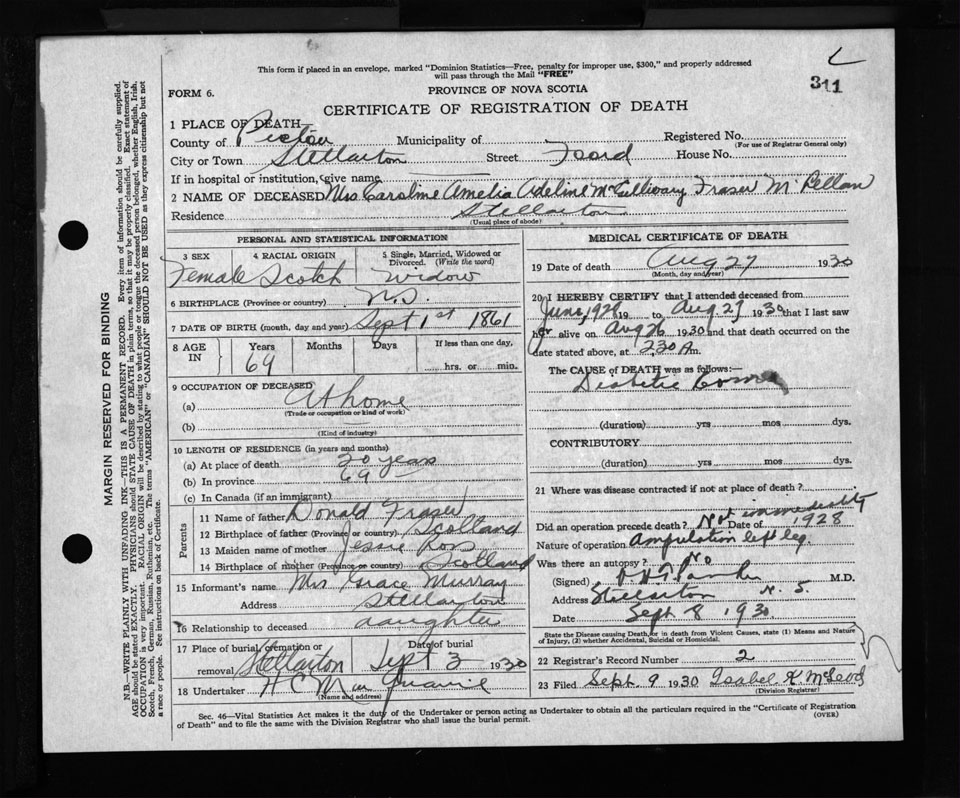 This form if placed in an envelope, marked "Dominion Statistics—Free, penalty for improper use, $300," and properly addressed
will pass through the Mail "FREE"
311
FORM 6.
PROVINCE OF NOVA SCOTIA
CERTIFICATE OF REGISTRATION OF DEATH
1 PLACE OF DEATH—
County of Pictou Municipality of Registered No.
(For use of Registrar General only)
City or Town Stellarton Street Foord House No.
If in hospital or institution, give name
2 NAME OF DECEASED Mrs Caroline Amelia Adeline McGillivary Fraser McLellan
Residence Stellarton
(Usual place of abode)
PERSONAL AND STATISTICAL INFORMATION
3 SEX 4 RACIAL ORIGIN 5 Single, Married, Widowed or Divorced. (Write the word)
Female Scotch Widow
6 BIRTHPLACE (Province or country) N.S.
7 DATE OF BIRTH (month, day and year) Sept 1st 1861
8 AGE IN Years Months Days If less than one day,
69 hrs. or min.
9 OCCUPATION OF DECEASED
(a) At home
(Trade or occupation or kind of work)
(b)
(Kind of industry)
10 LENGTH OF RESIDENCE (in years and months)
(a) At place of death 20 years
(b) In province 69
(c) In Canada (if an immigrant)
Parents
11 Name of father Donald Fraser
12 Birthplace of father (Province or country) Scotland
13 Maiden name of mother Jessie Ross
14 Birthplace of mother (Province or country) Scotland
15 Informant's name Mrs Grace Murray
Address Stellarton
16 Relationship to deceased daughter
17 Place of burial, cremation or removal Stellarton Date of burial Sept 3 1930
18 Undertaker H C
(Name and address)
MEDICAL CERTIFICATE OF DEATH
19 Date of death Aug 27 1930
(Month, day and year)
20 I HEREBY CERTIFY that I attended deceased from
June, 1928 19 to Aug 27 1930 that I last saw
her alive on Aug 26 1930 and that death occurred on
date stated above, at 2.30 A m.
The CAUSE of DEATH was as follows:
Diabetic Coma
(duration) yrs mos dys.
CONTRIBUTORY
(duration) yrs mos dys.
21 Where was disease contracted if not at place of death?
Did an operation precede death? Not immediately Date of 1928
Nature of operation Amputation left leg.
Was there an autopsy? No
(Signed) M.D.
Address Stellarton N. S.
Date Sept 8 1930
State the Disease causing Death, or in death from Violent Causes, state (1) Means and Nature
of Injury, (2) whether Accidental, Suicidal or Homicidal.
22 Registrar's Record Number 2
23 Filed Sept. 9 1930 Isabel K McLeod
(Division Registrar)
Sec. 46—Vital Statistics Act makes it the duty of the Undertaker or person acting as Undertaker to obtain all the particulars required in the "Certificate of Registration
of Death" and to file the same with the Division Registrar who shall issue the burial permit.
(OVER)
MARGIN RESERVED FOR BINDING
N.B.—WRITE PLAINLY WITH UNFADING INK—THIS IS A PERMANENT RECORD. Every item of information should be carefully supplied.
AGE should be stated EXACTLY. PHYSICIANS should STATE CAUSE OF DEATH in plain terms, so that it may be properly classified. Exact statement of
OCCUPATION is very important. RACIAL ORIGIN will be described by stating to what people or tongue the deceased person belonged, whether English, Irish,
Scotch, French, German, Russian, Ruthenian, etc. The terms "AMERICAN" or "CANADIAN" SHOULD NOT BE USED as they express citizenship but not
a race or people. See instructions on back of Certificate.